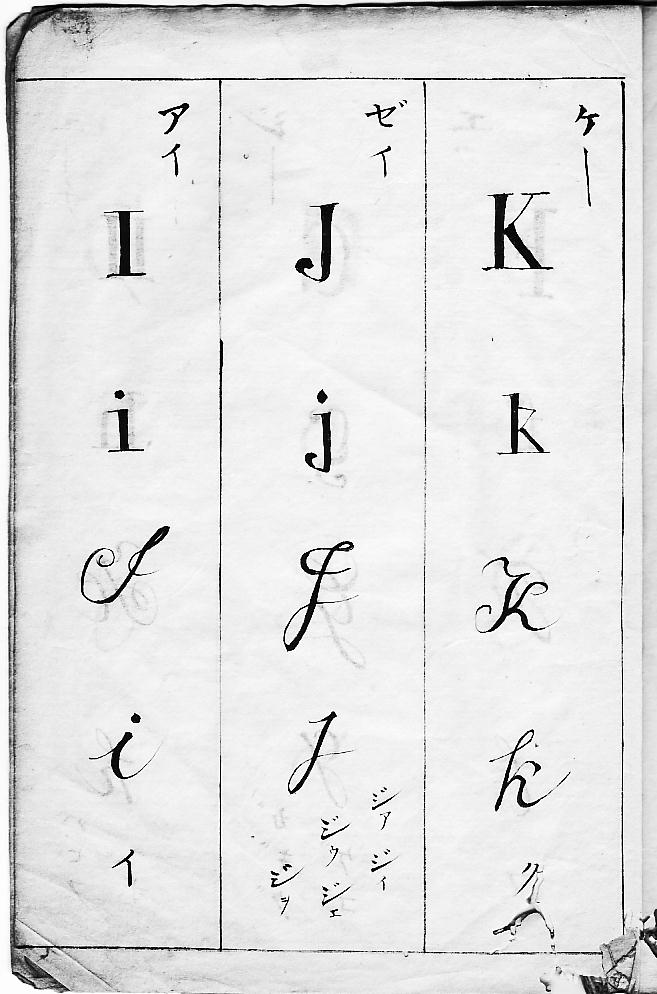 アイ
I
i
I
i
イ
ゼイ
J
j
J
j
ジア
ジイ
ジウ
ジエ
ジヲ
ケー
K
k
K
k
ク